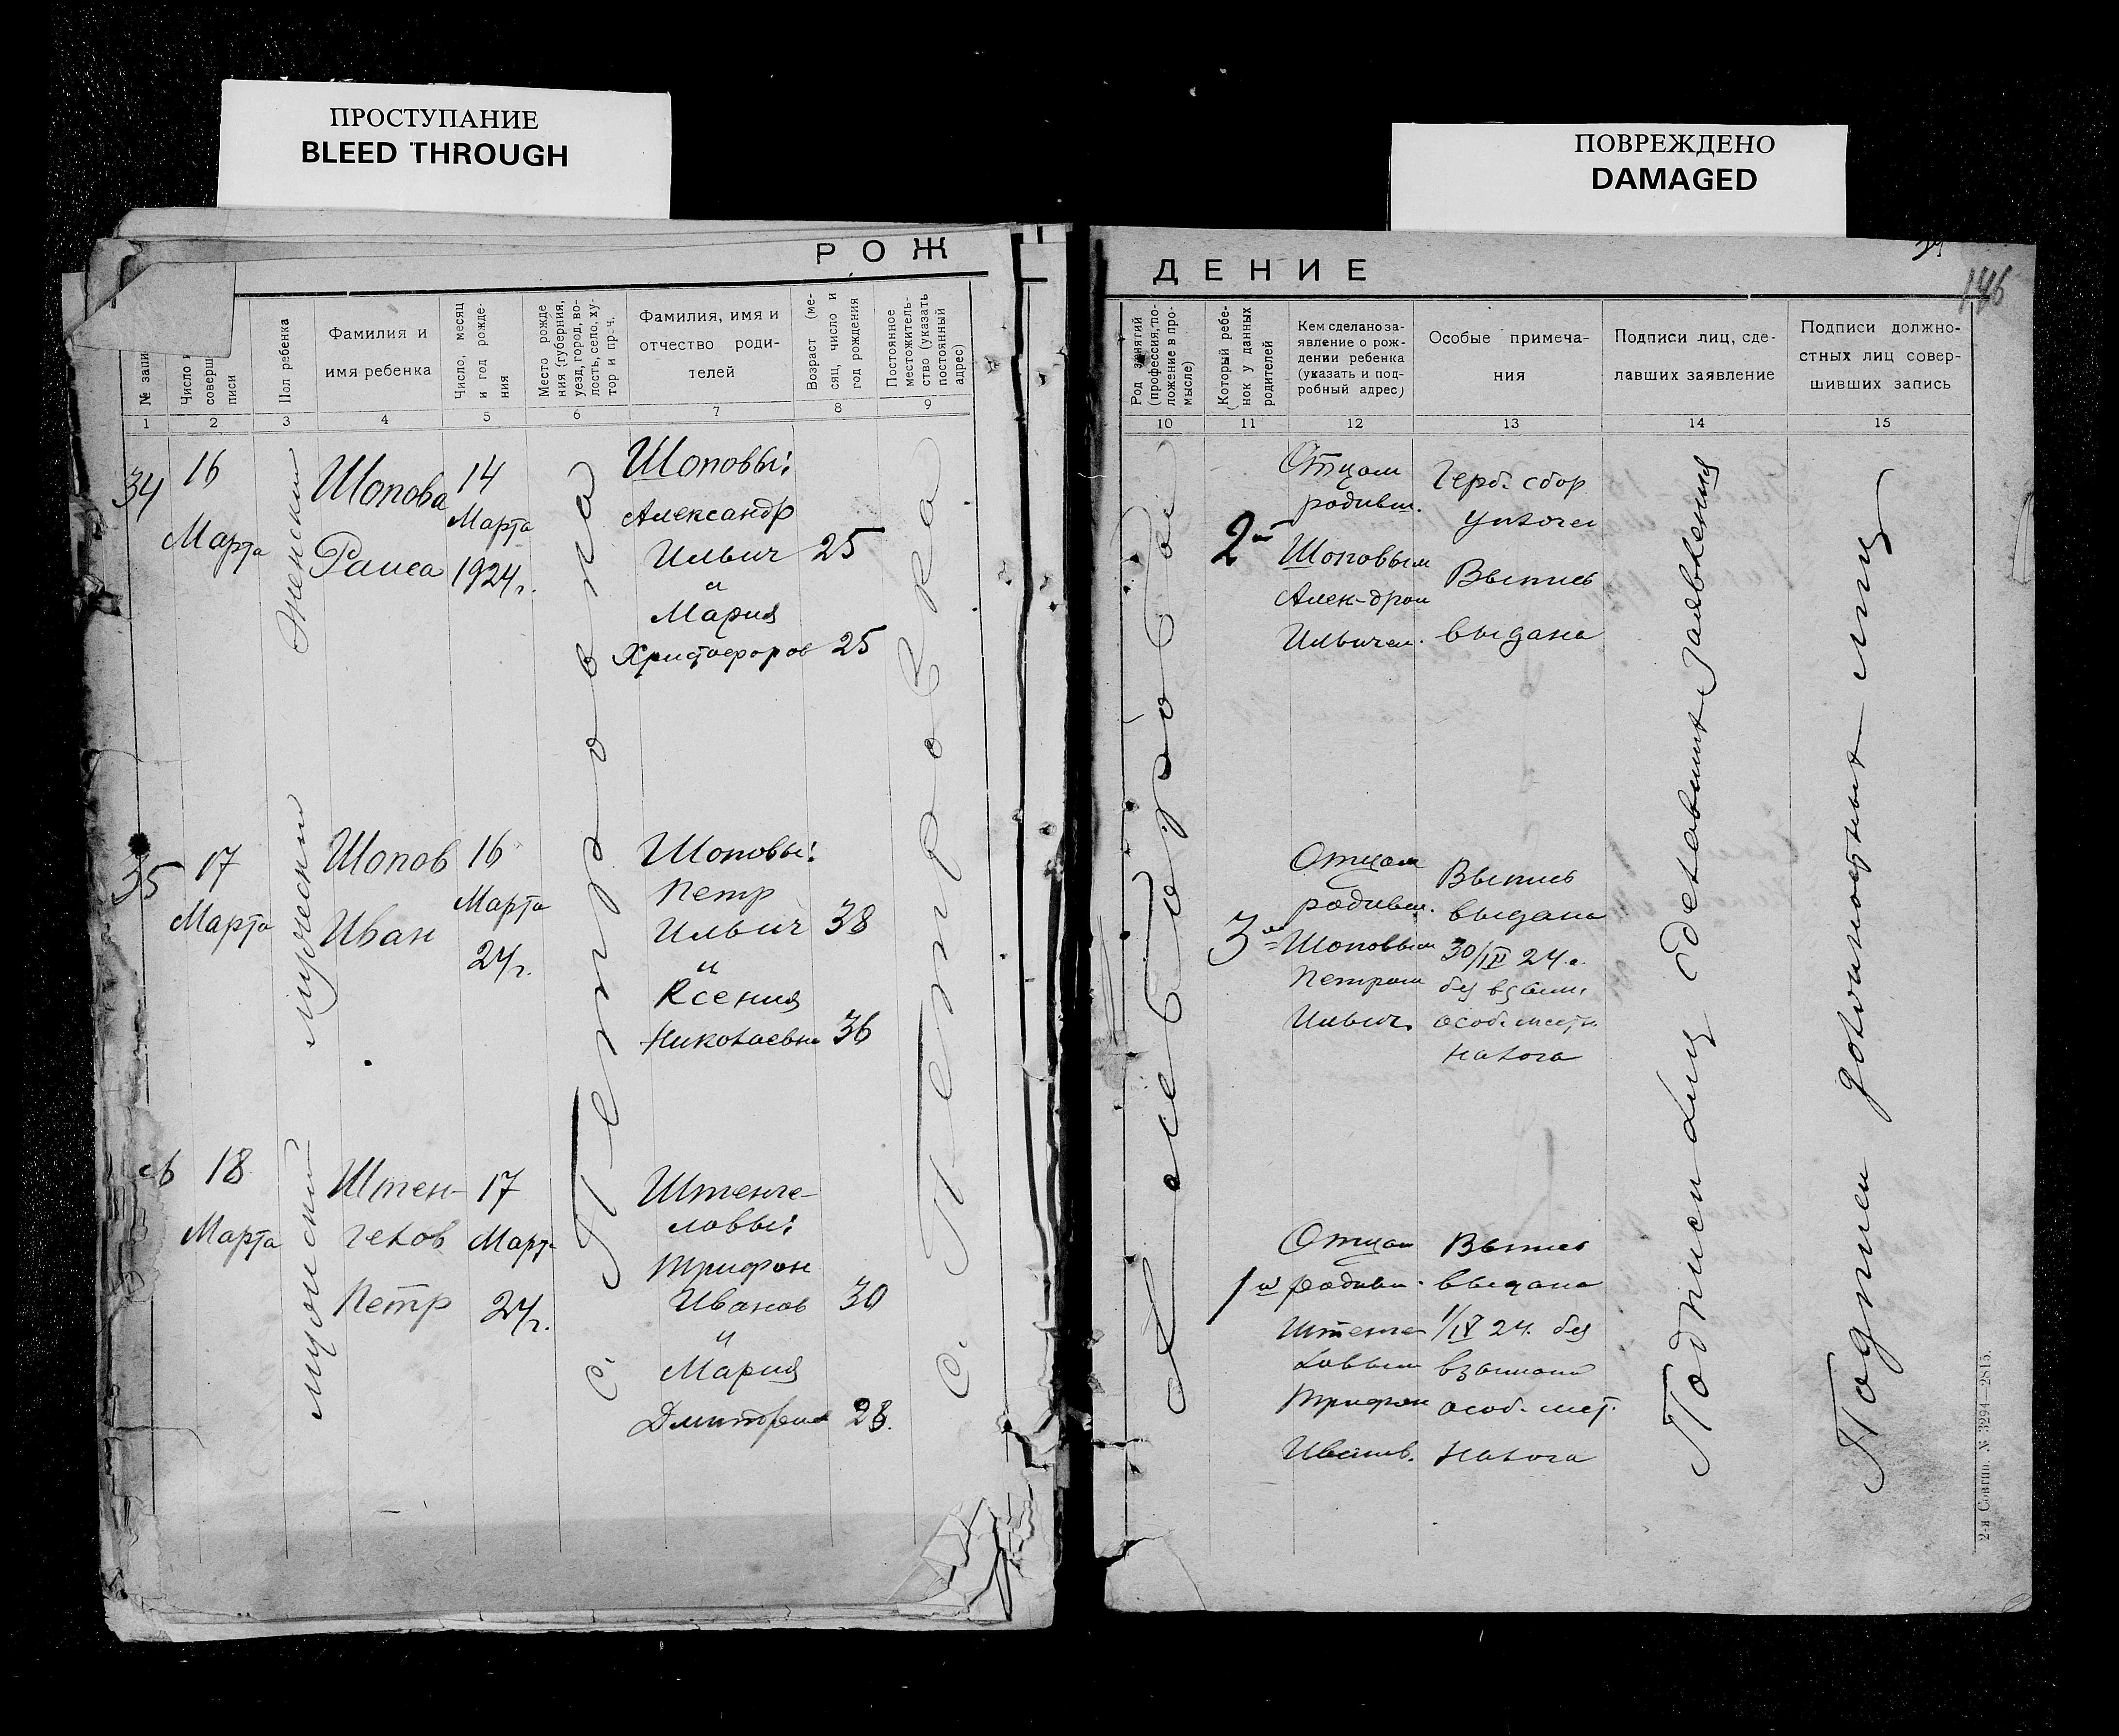 ПРОСТУПАНИЕ
BLEED THROUGH
ПОВРЕЖДЕНО
DAMAGED
РОЖ
ДЕНИЕ
146
№ запи
Число и
соверш
писи
Пол ребенка
Фамилия и
имя ребенка
Число, месяц
и год рожде-
ния
Место рожде
ния (губерния,
уезд, город, во-
лость, село, ху-
тор и проч.
Фамилия, имя и
отчество роди-
телей
Возраст (ме-
сяц, число и
год рождения
Постоянное
местожитель-
ство (указать
постоянный
адрес)
Род занятий
(профессия, по-
ложение в про-
мысле)
Который ребе-
нок у данных
родителей
Кем сделано за-
явление о рож-
дении ребенка
(указать и под-
робный адрес)
Особые примеча-
ния
Подписи лиц, сде-
лавших заявление
Подписи должно-
стных лиц совер-
шивших запись
1 2 3 4 5 6 7 8 9
10 11 12 13 14 15
34
16
Марта
Женский
Шопова
Раиса
14
Марта
1924 г.
Шоповы:
Александр
Ильич 25
и
Мария
Христофоров 25
2й
Отцом
родивш.
Шоповым
Алек-дром
Ильичем.
Герб. сбор
уплочен
Выпись
выдана
35
17
Марта
мужеский
Шопов
Иван
16
Марта
24 г.
Шоповы:
Петр
Ильич 38
и
Ксения
Николаевна 36
3й
Отцом
родивш.
Шоповым
Петром
Ильич.
Выпись
выдана
30/IV 24 г.
без взыск.
особ. мест.
налога
18
Марта
мужеский
Штен-
гелов
Петр
17
Март
24 г.
Штенге-
ловы:
Трифон
Иванов 30
и
Мария
Дмитревна 28.
1й
Отцом
родивш.
Штенге
ловым
Трифон
Иванов.
Выпись
выдана
1/IV 24. без
взыскани
особ. мест.
налога
с. Петровка
с. Петровка
Хлебороб
Подписи лиц сделавших заявления
Подписи должностных лиц
2-я Совтип. № 3294—2815.